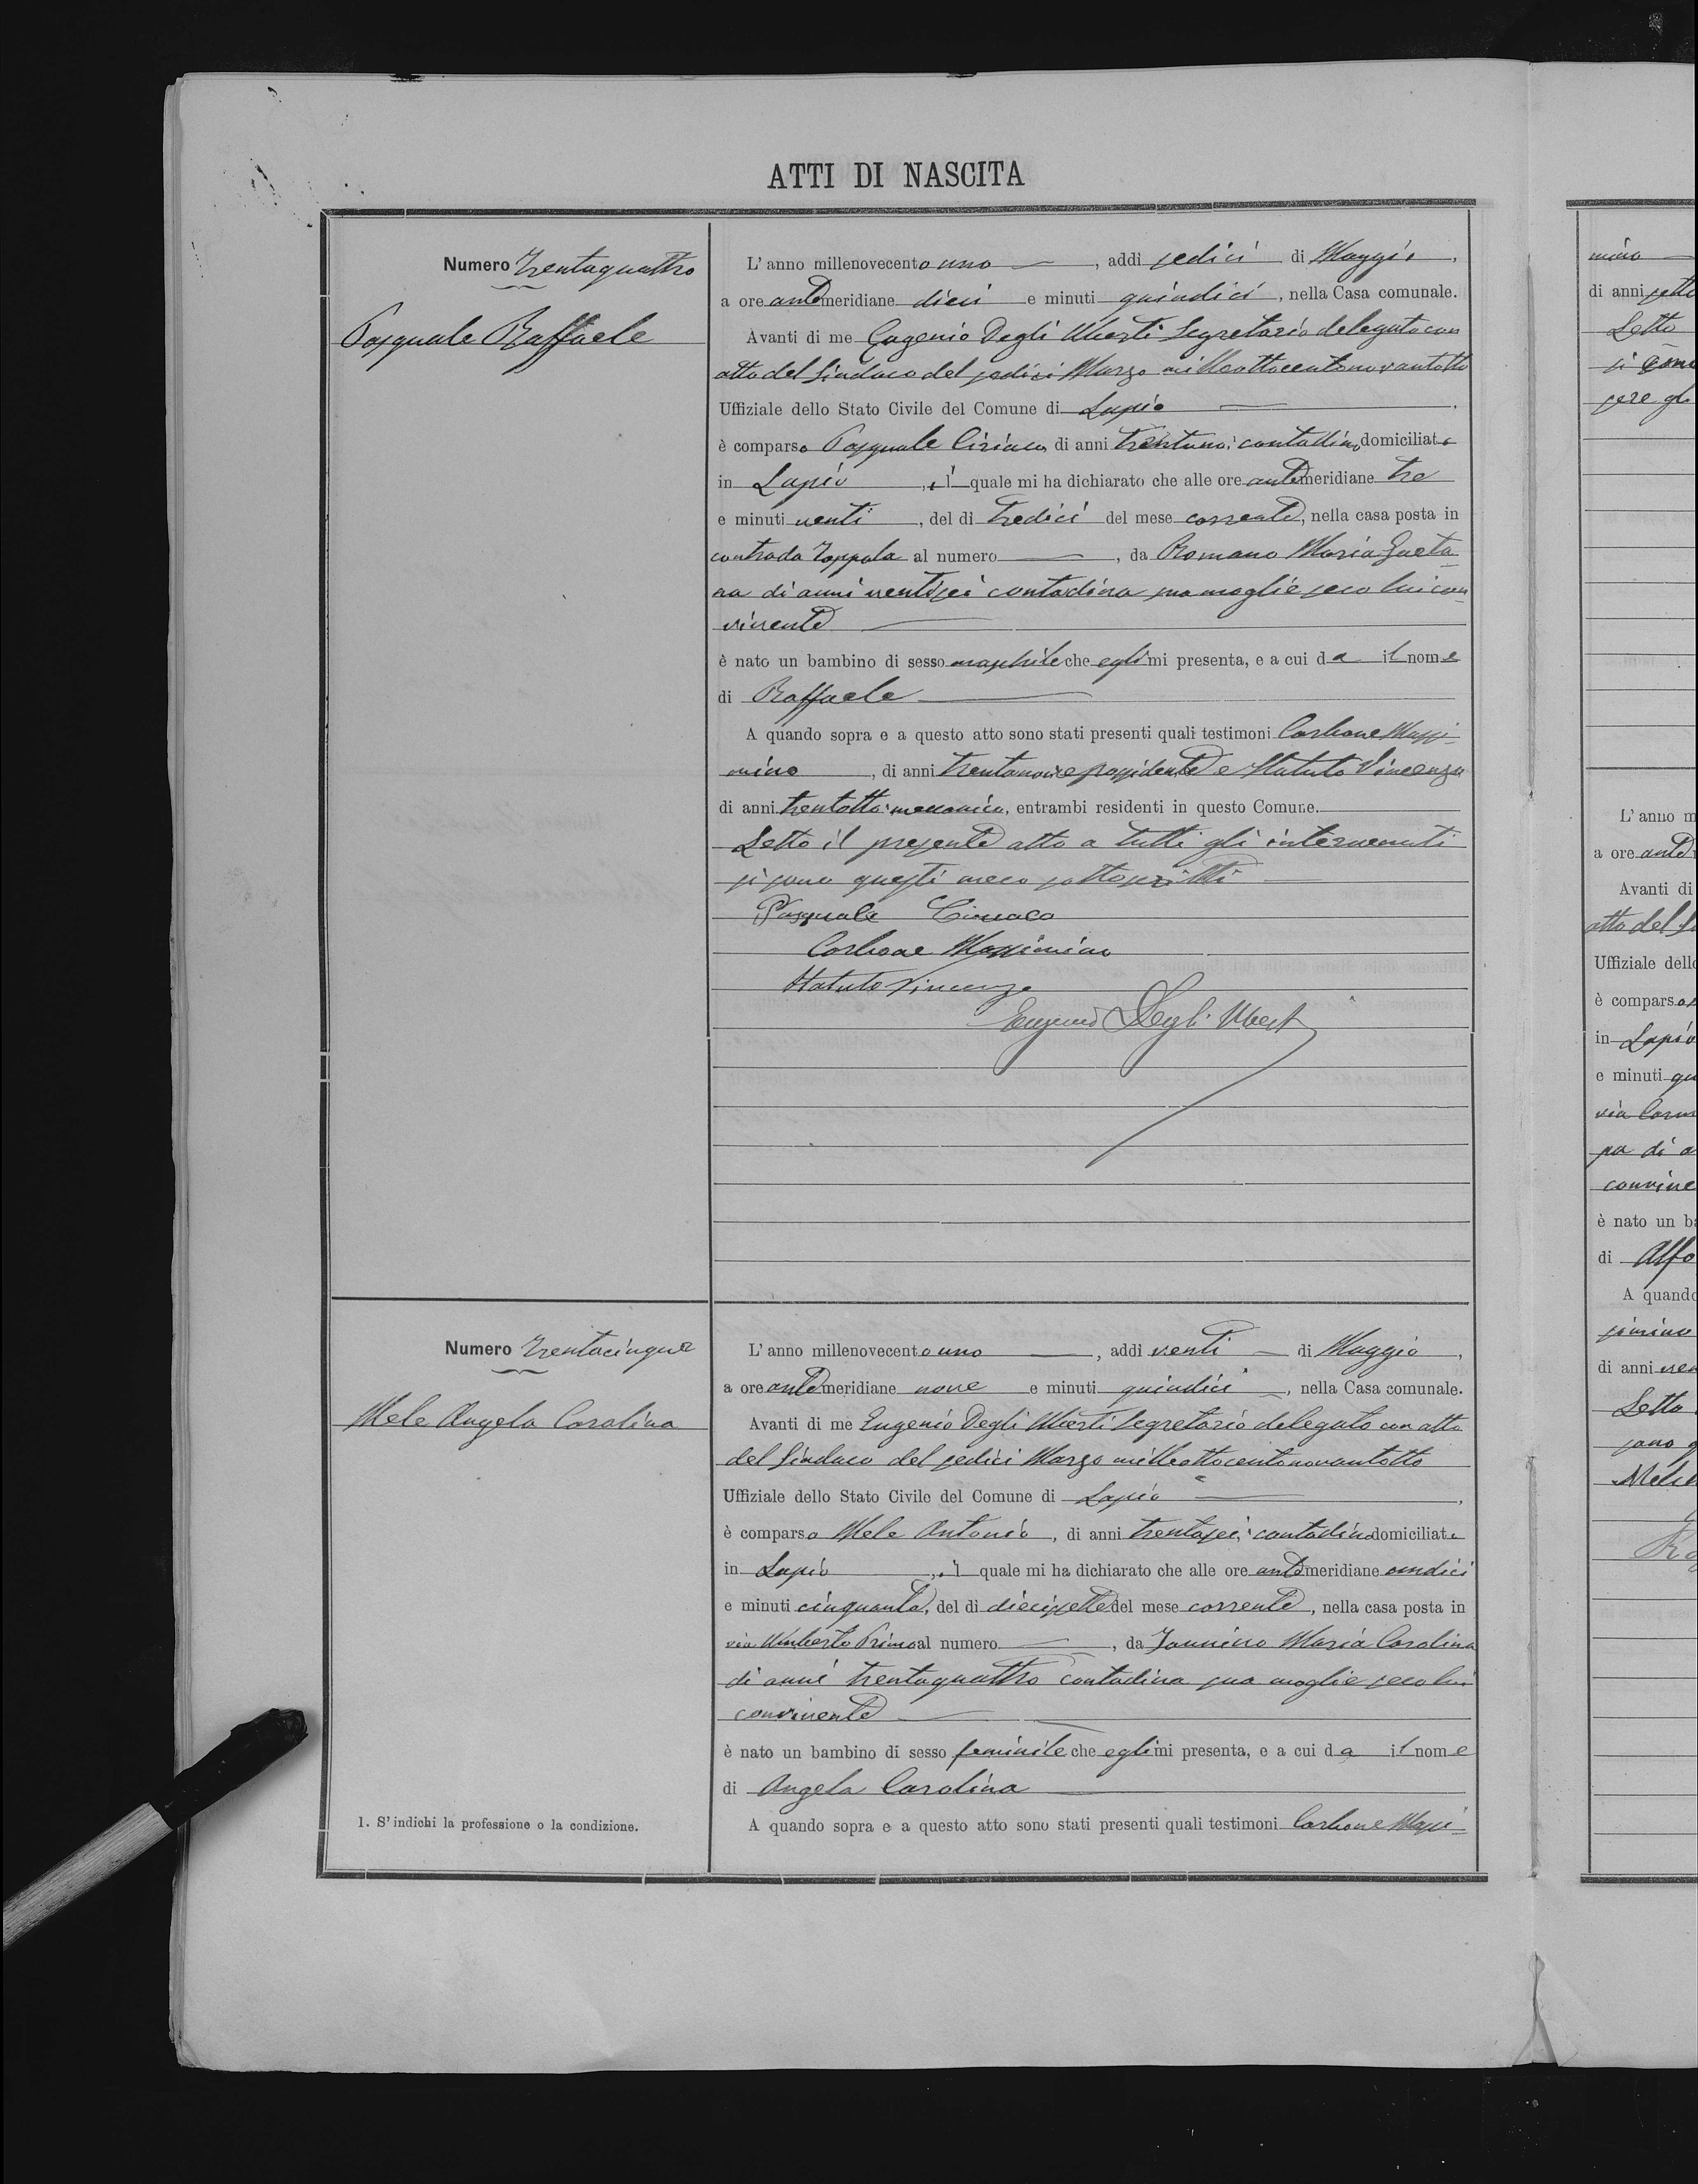 ATTI DI NASCITA
Numero Trentaquattro
Pasquale Raffaele
L'anno millenovecento uno, addi sedici di Maggio,
a ore antemeridiane dieci e minuti quindici, nella Casa comunale.
Avanti di me Eugenio Degli Uberti Segretario delegato con
atto del Sindaco del sedici Marzo milleottocentonovantotto
Uffiziale dello Stato Civile del Comune di Lapio.
è comparso Pasquale Ciriaco, di anni trentuno, contadino domiciliato
in Lapio, il quale mi ha dichiarato che alle ore antemeridiane tre
e minuti venti, del di tredici del mese corrente, nella casa posta in
contrada Toppola al numero, da Romano Maria Gaeta-
na di anni ventisei contadina sua moglie seco lui con-
vivente
è nato un bambino di sesso maschile che egli mi presenta, e a cui da il nome
di Raffaele
A quando sopra e a questo atto sono stati presenti quali testimoni Carbone Massi-
mino, di anni trentanove possidente e Statuto Vincenzo
di anni trentotto, meccanico, entrambi residenti in questo Comune.
Letto il presente atto a tutti gli intervenuti
si sono questi meco sottoscritti
Pasquale Ciriaco
Carbone Massimino
Statuto Vincenzo
Eugenio Degli Uberti
Numero Trentacinque
Mele Angela Carolina
L'anno millenovecento uno, addi venti di Maggio,
a ore antemeridiane nove e minuti quindici, nella Casa comunale.
Avanti di me Eugenio Degli Uberti Segretario delegato con atto
del Sindaco del sedici Marzo milleottocentonovantotto
Uffiziale dello Stato Civile del Comune di Lapio,
è comparso Mele Antonio, di anni trentasei, contadino domiciliato
in Lapio, il quale mi ha dichiarato che alle ore antemeridiane undici
e minuti cinquanta, del di diecissette del mese corrente, nella casa posta in
via Umberto Primo al numero, da Iannino Maria Carolina
di anni trentaquattro contadina sua moglie seco lui
convivente
è nato un bambino di sesso feminile che egli mi presenta, e a cui da il nome
di Angela Carolina
A quando sopra e a questo atto sono stati presenti quali testimoni Carbone Massi-
1. S'indichi la professione o la condizione.
mino
di anni sette
Letto
si
sere gl
L'anno m
a ore ante
Avanti di
atto del S
Uffiziale dello
è comparso
in Lapio
e minuti qu
via
sa di a
convive
è nato un ba
di Alfo
A quando
simino
di anni ven
Letto
sono q